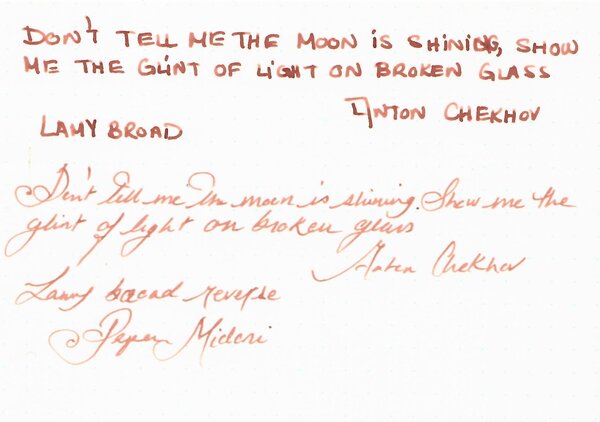 DON'T TELL ME THE MOON IS SHINING, SHOW
ME THE GLINT OF LIGHT ON BROKEN GLASS
ANTON CHEKHOV
LAMY BROAD
Don't tell me the moon is shining. Show me the
glint of light on broken glass
Anton Chekhov
Lamy broad reverse
Paper Midori